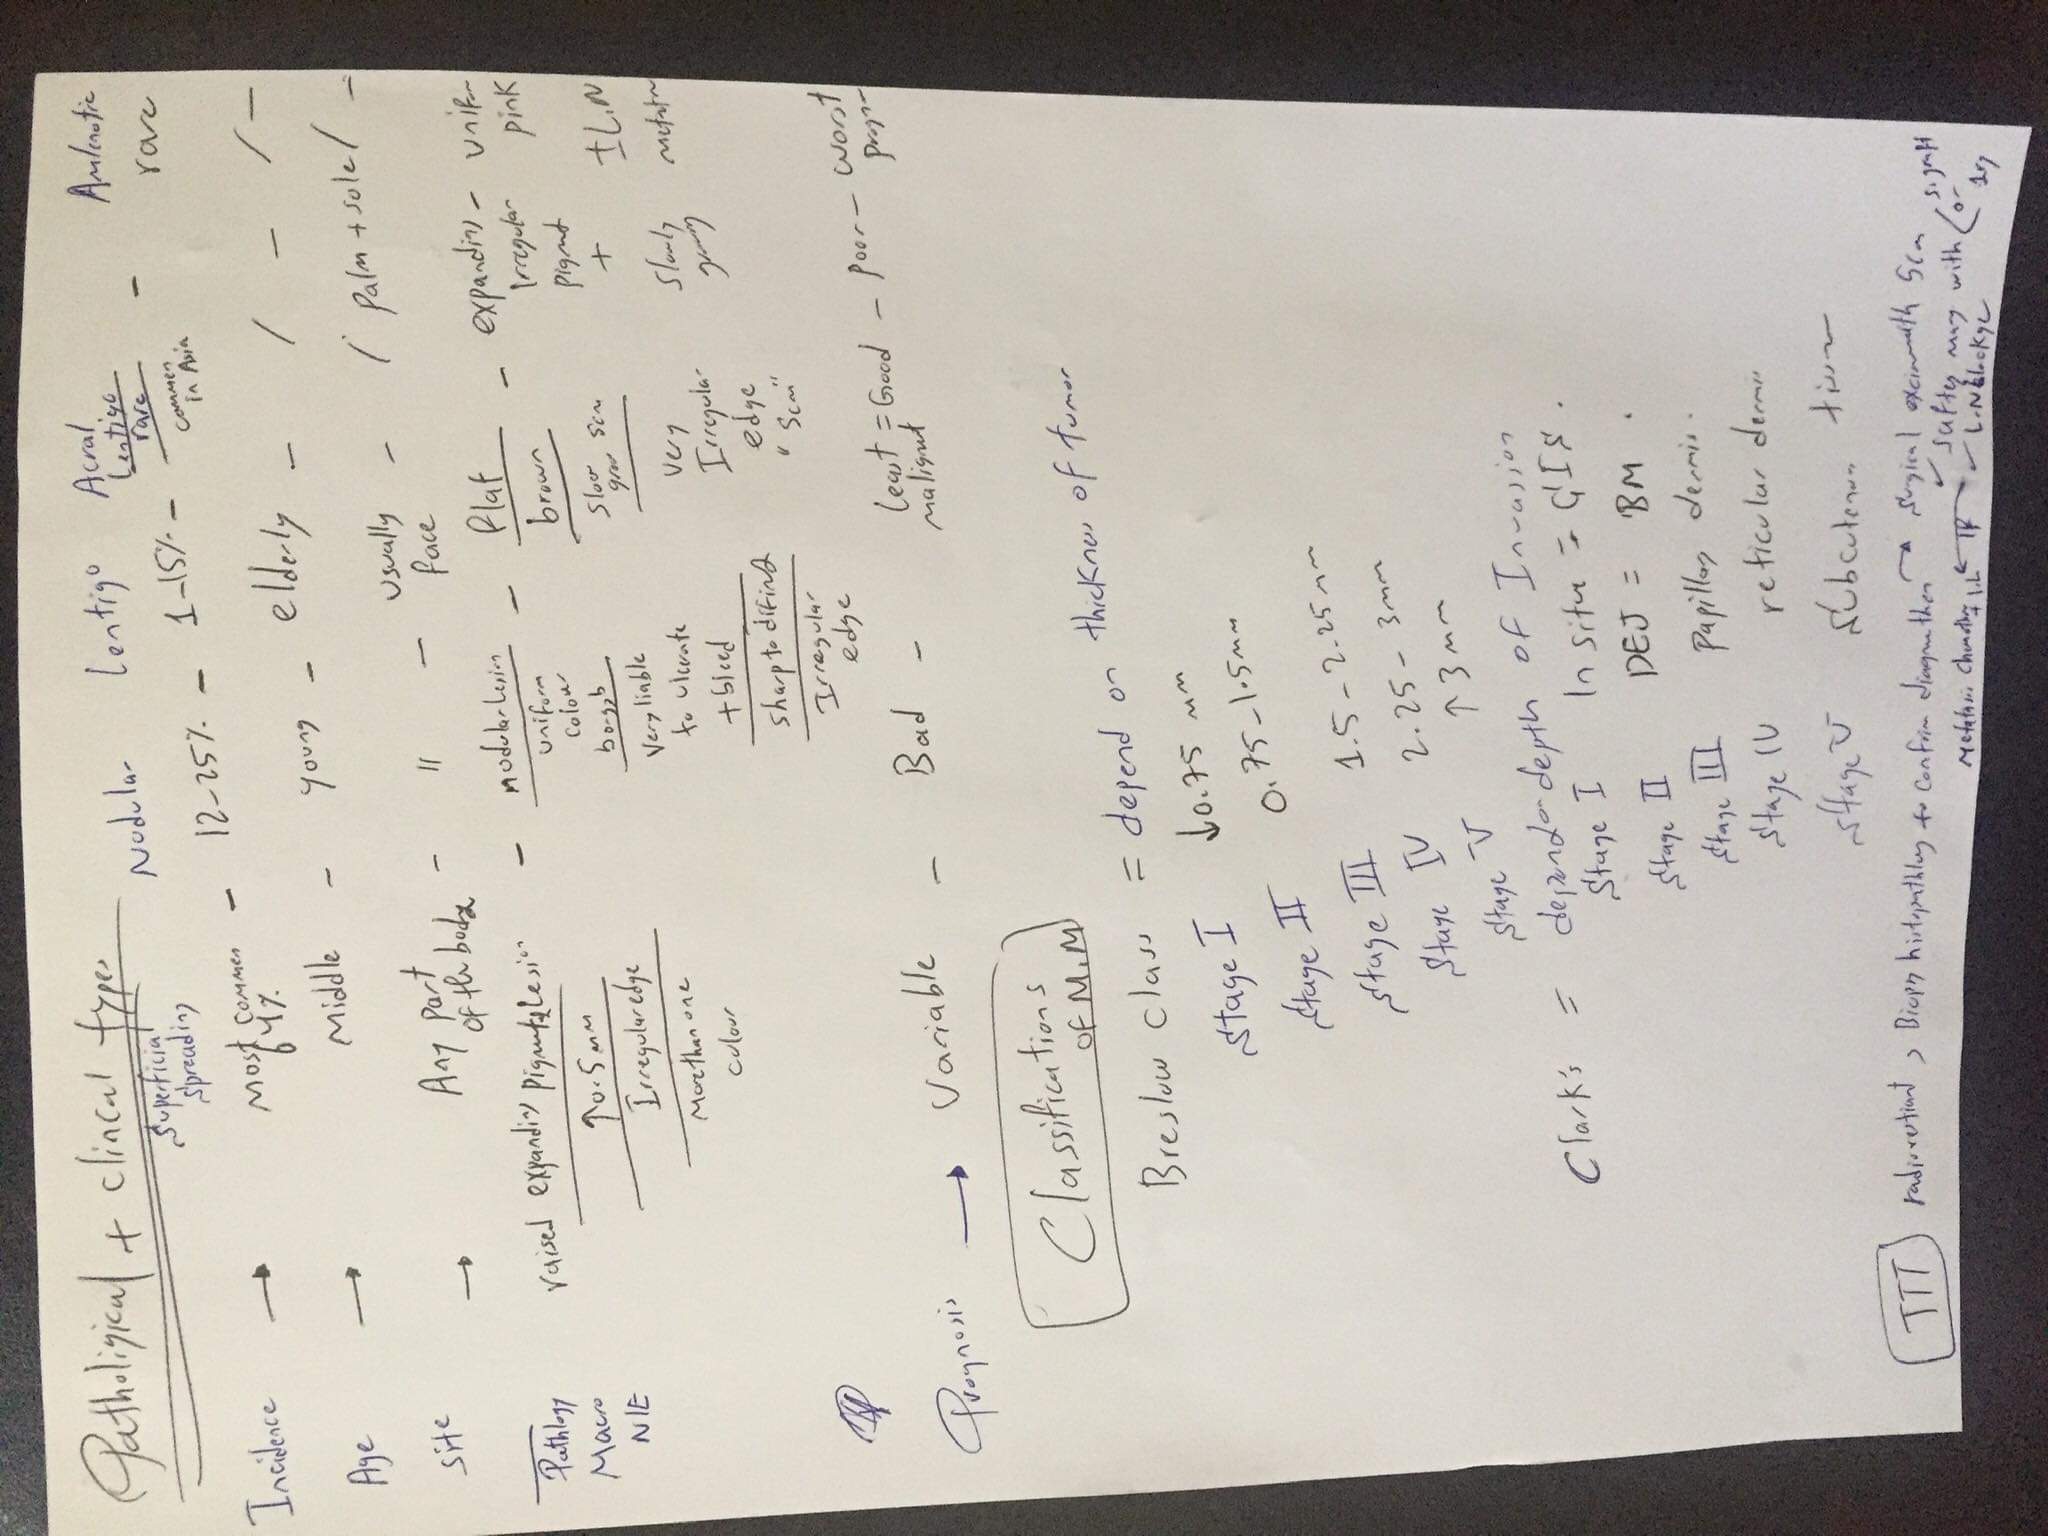 Patholigical + clincal types
Superficia Spreading Nodular Lentigo Acral Lentigo Amlenotic
Incidence → Most Common 64% - 12-25% - 1-15% - rare common in Asia - rare
Age → Middle - young - elderly - / - / -
Site → Any part of the body - " - usually Face - / Palm + sole / -
Pathlogy Macro N/E
raised expanding Pigmented Lesion
↑ 0.5 mm
Irregular edge
More than one colour
- Nodular Lesion
uniform colour
very liable to ulcerate + bleed
sharp to difind
Irregular edge
- Flat
brown
slow grow
very Irregular edge
- expanding Irregular Pigment +
Slowly growing
- unifrm pink
± L.N
Prognosis → Variable - Bad - Least malignant = Good - Poor - worst
Classifications of M.M
Breslow class = depend on thicknes of tumor
Stage I ↓0.75 mm
Stage II 0.75-1.5mm
Stage III 1.5-2.25 mm
Stage IV 2.25-3mm
Stage V ↑3mm
Clark's = depend on depth of Invasion
Stage I In situ =
Stage II DEJ = BM.
Stage III Papillary dermis.
Stage IV reticular dermis
Stage V Subcutenous
TTT , Biopsy histopathlogy to confirm diagnosis then → Surgical with 5cm
Safty with